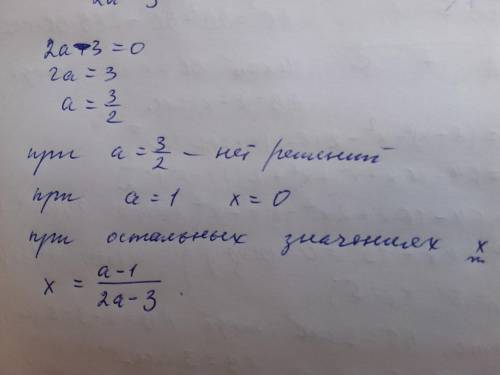 2a-3
2a-3=0
2a=3
a=3/2
при a=3/2 – нет решений
при a=1 x=0
при остальных значениях x
x = a-1/2a-3.